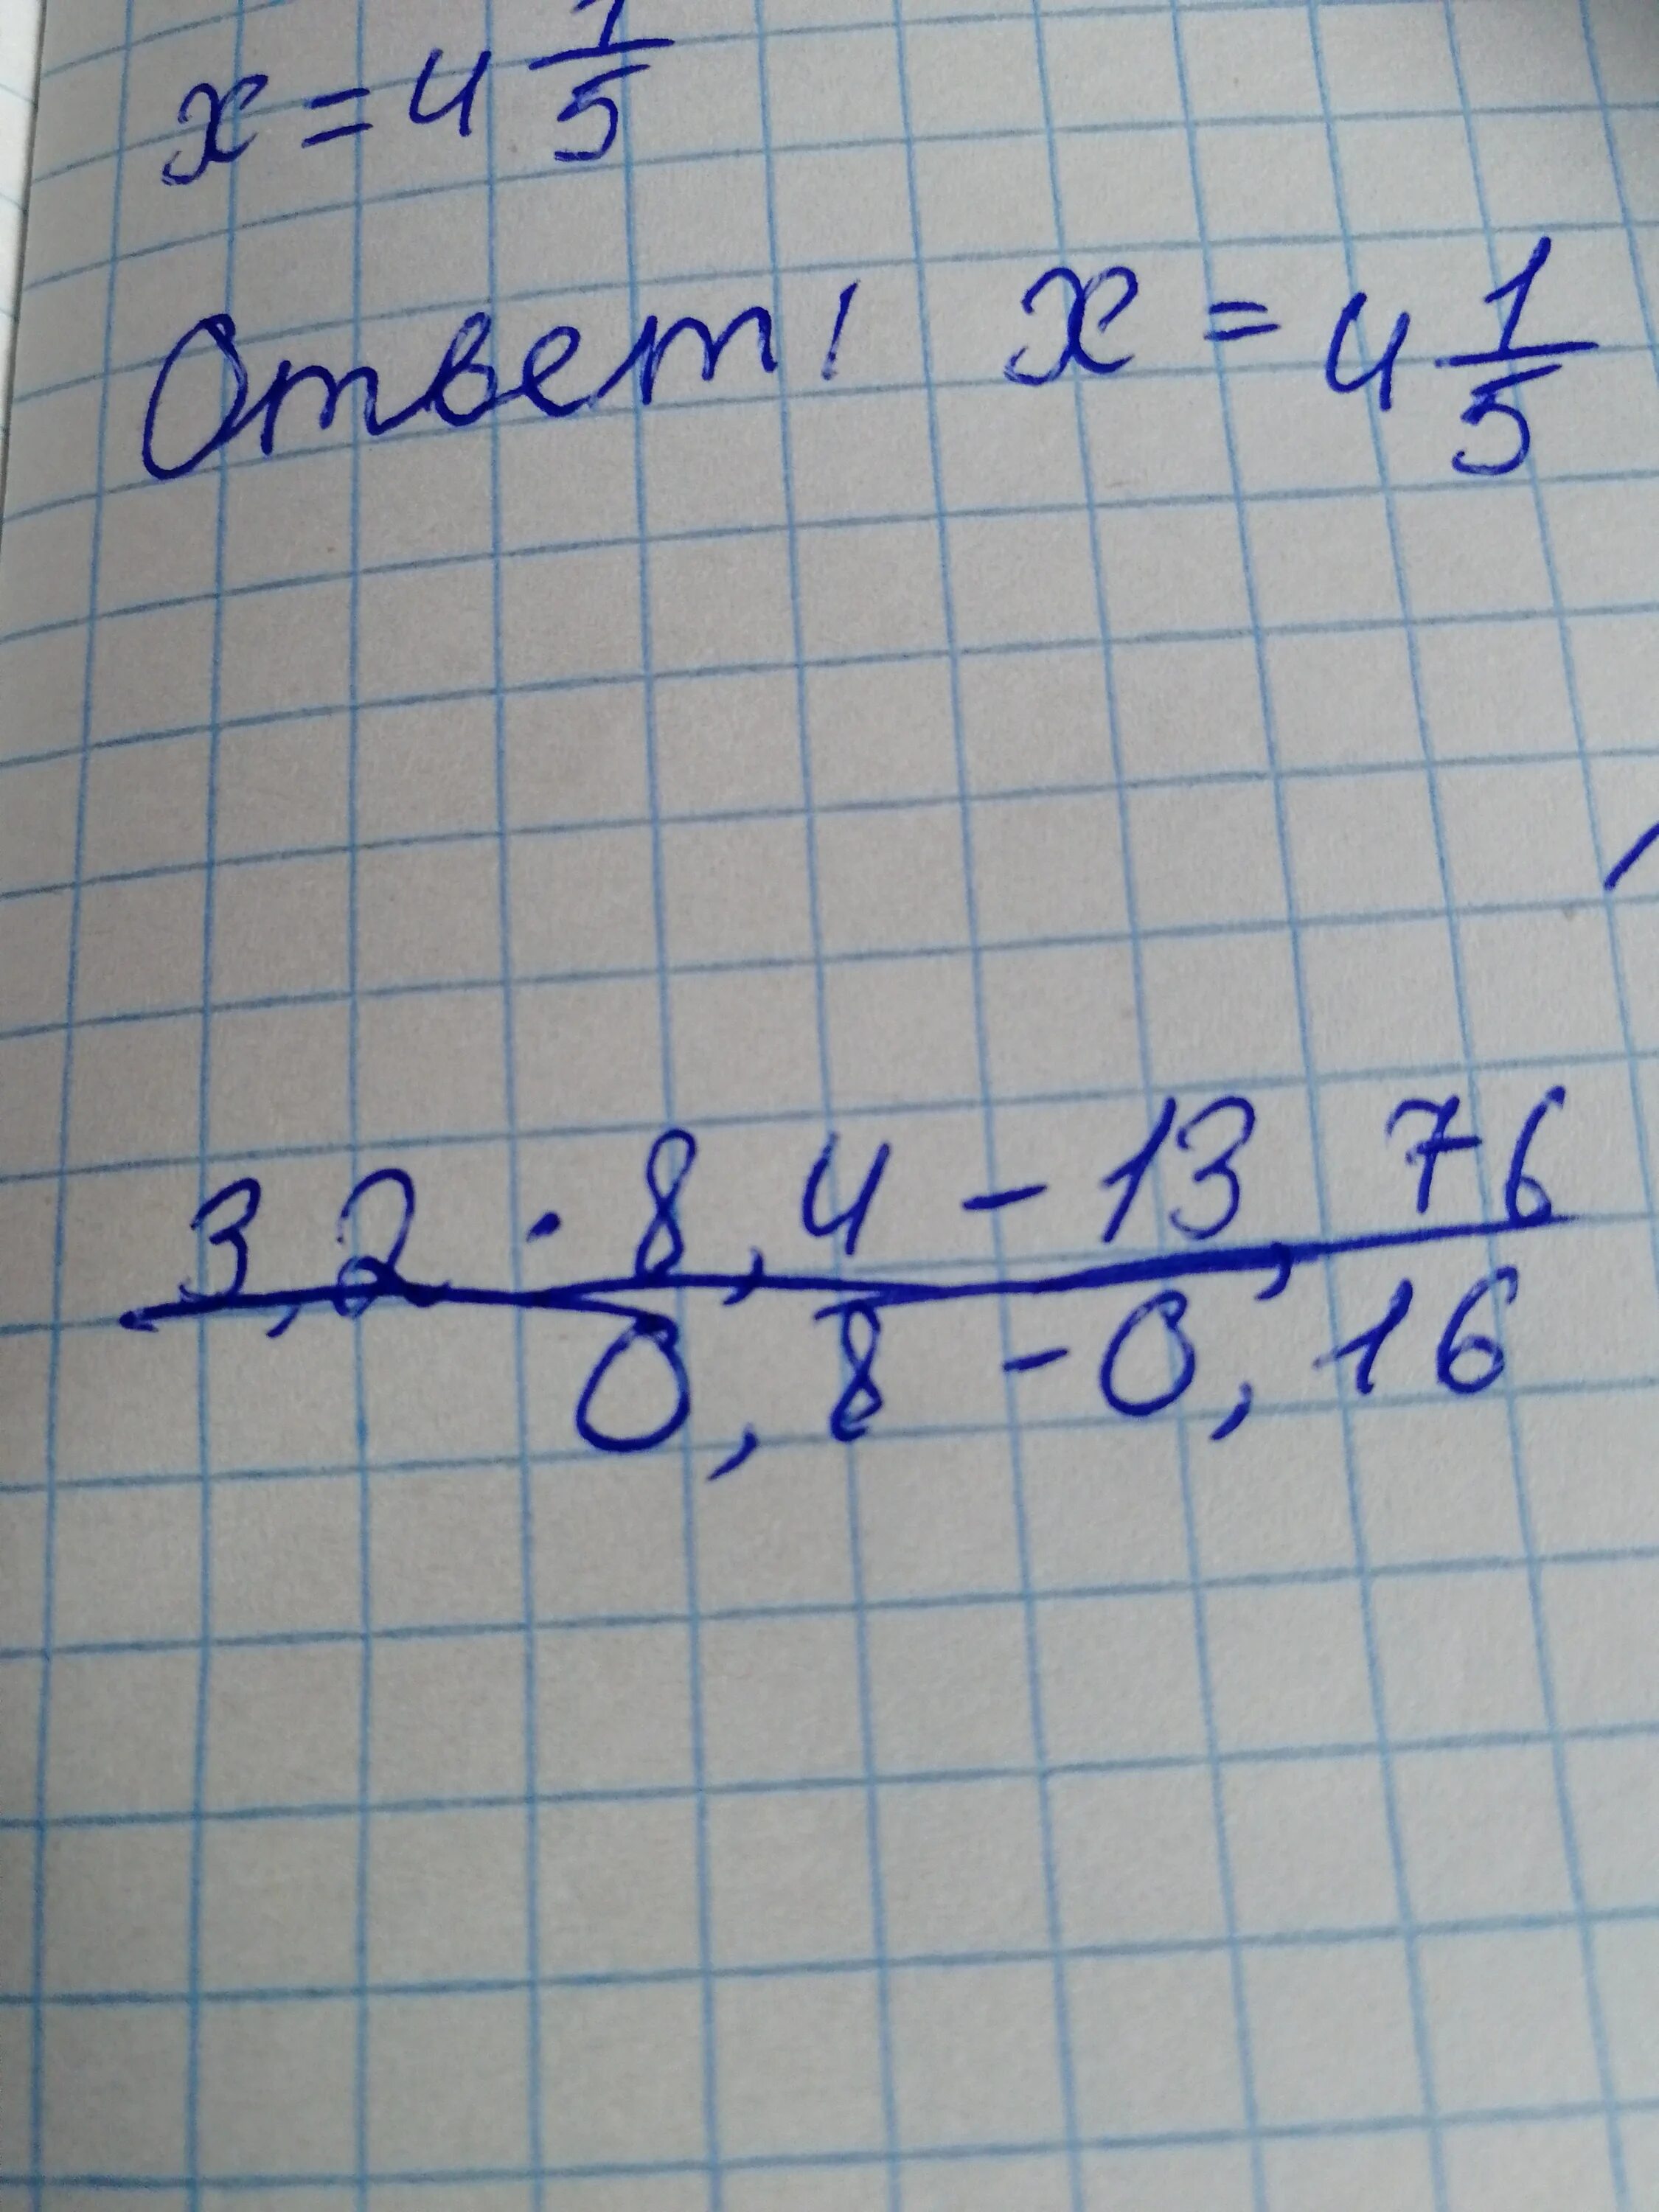 x = 4 1/5
Ответ: x = 4 1/5
3,2 · 8,4 - 13,76
0,8 - 0,16